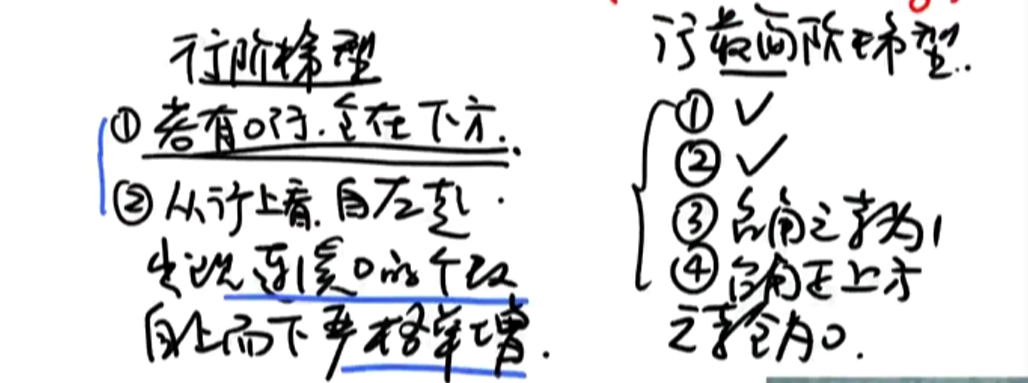 行阶梯型
① 若有0行.全在下方.
② 从行上看.自左起.
出现连续0的个数
自上而下严格单增.
行最简阶梯型..
① ✓
② ✓
③ 台角之元素为1
④ 台角正上方
之元素全为0.